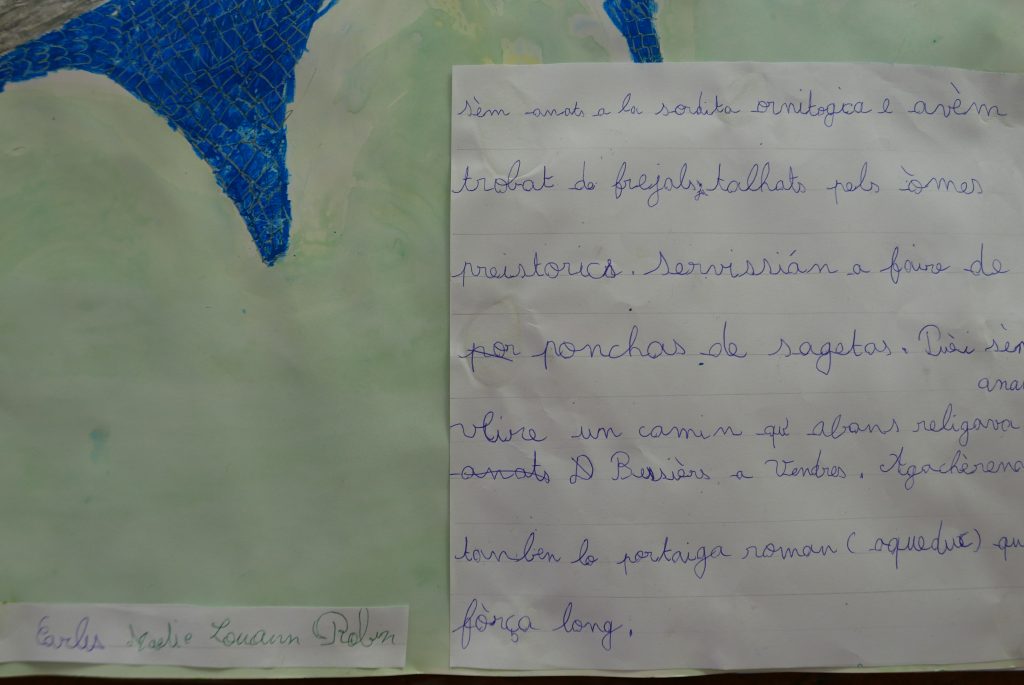 sèm anats a la sordita ornitogica e avèm
trobat de frejals talhats pels òmes
preistorics. Servissián a faire de
por ponchas de sagetas. Puèi sèm
anat
vèire un camin qu' abans religava
anats D Bessièrs a Vendres. Agachèrem
tamben lo portaiga roman ( aqueduc) qu
fòrça long.
Carles Louann Robin